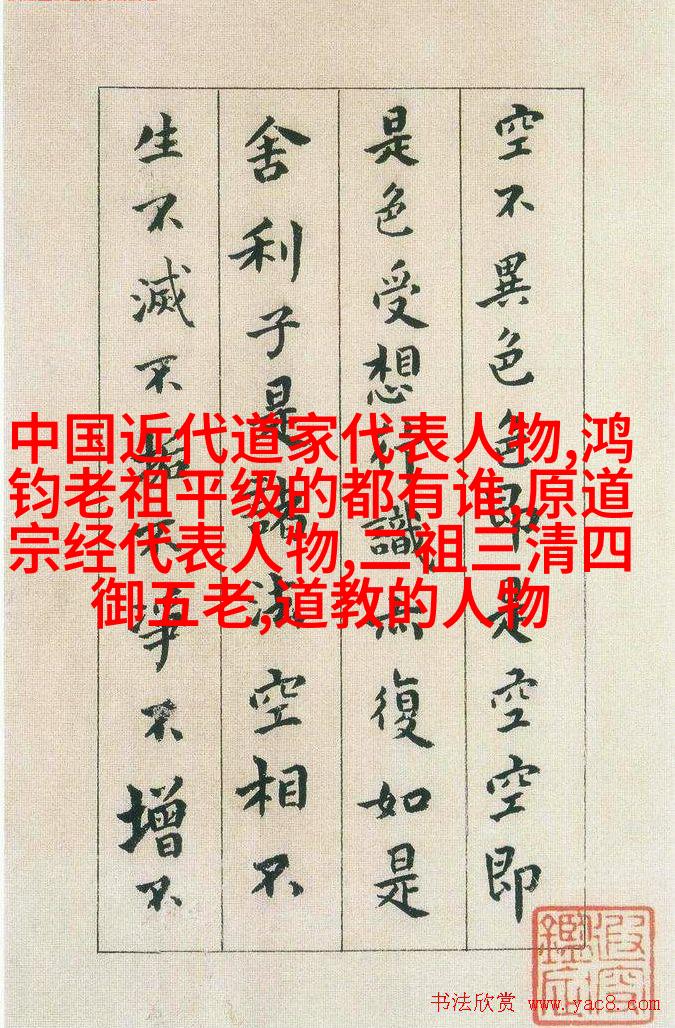 空不異色色即是空空即
是色受想行識亦復如是
舍利子是諸法空相不
生不滅不垢不淨不增不
中国近代道家代表人物,鸿
钧老祖平级的都有谁,原道
宗经代表人物,二祖三清四
御五老,道教的人物
书法欣赏 www.yac8.com